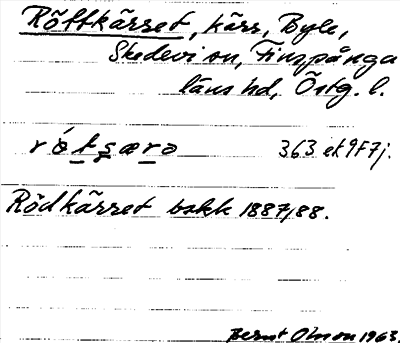 Röttkärret, kärr, Byle,
Skedevi sn, Finspånga
läns hd, Östg. l.
rǿtʂærə 363 ek 9F7j.
Rödkärret bskk 1887/88.
Bernt Olsson 1963.